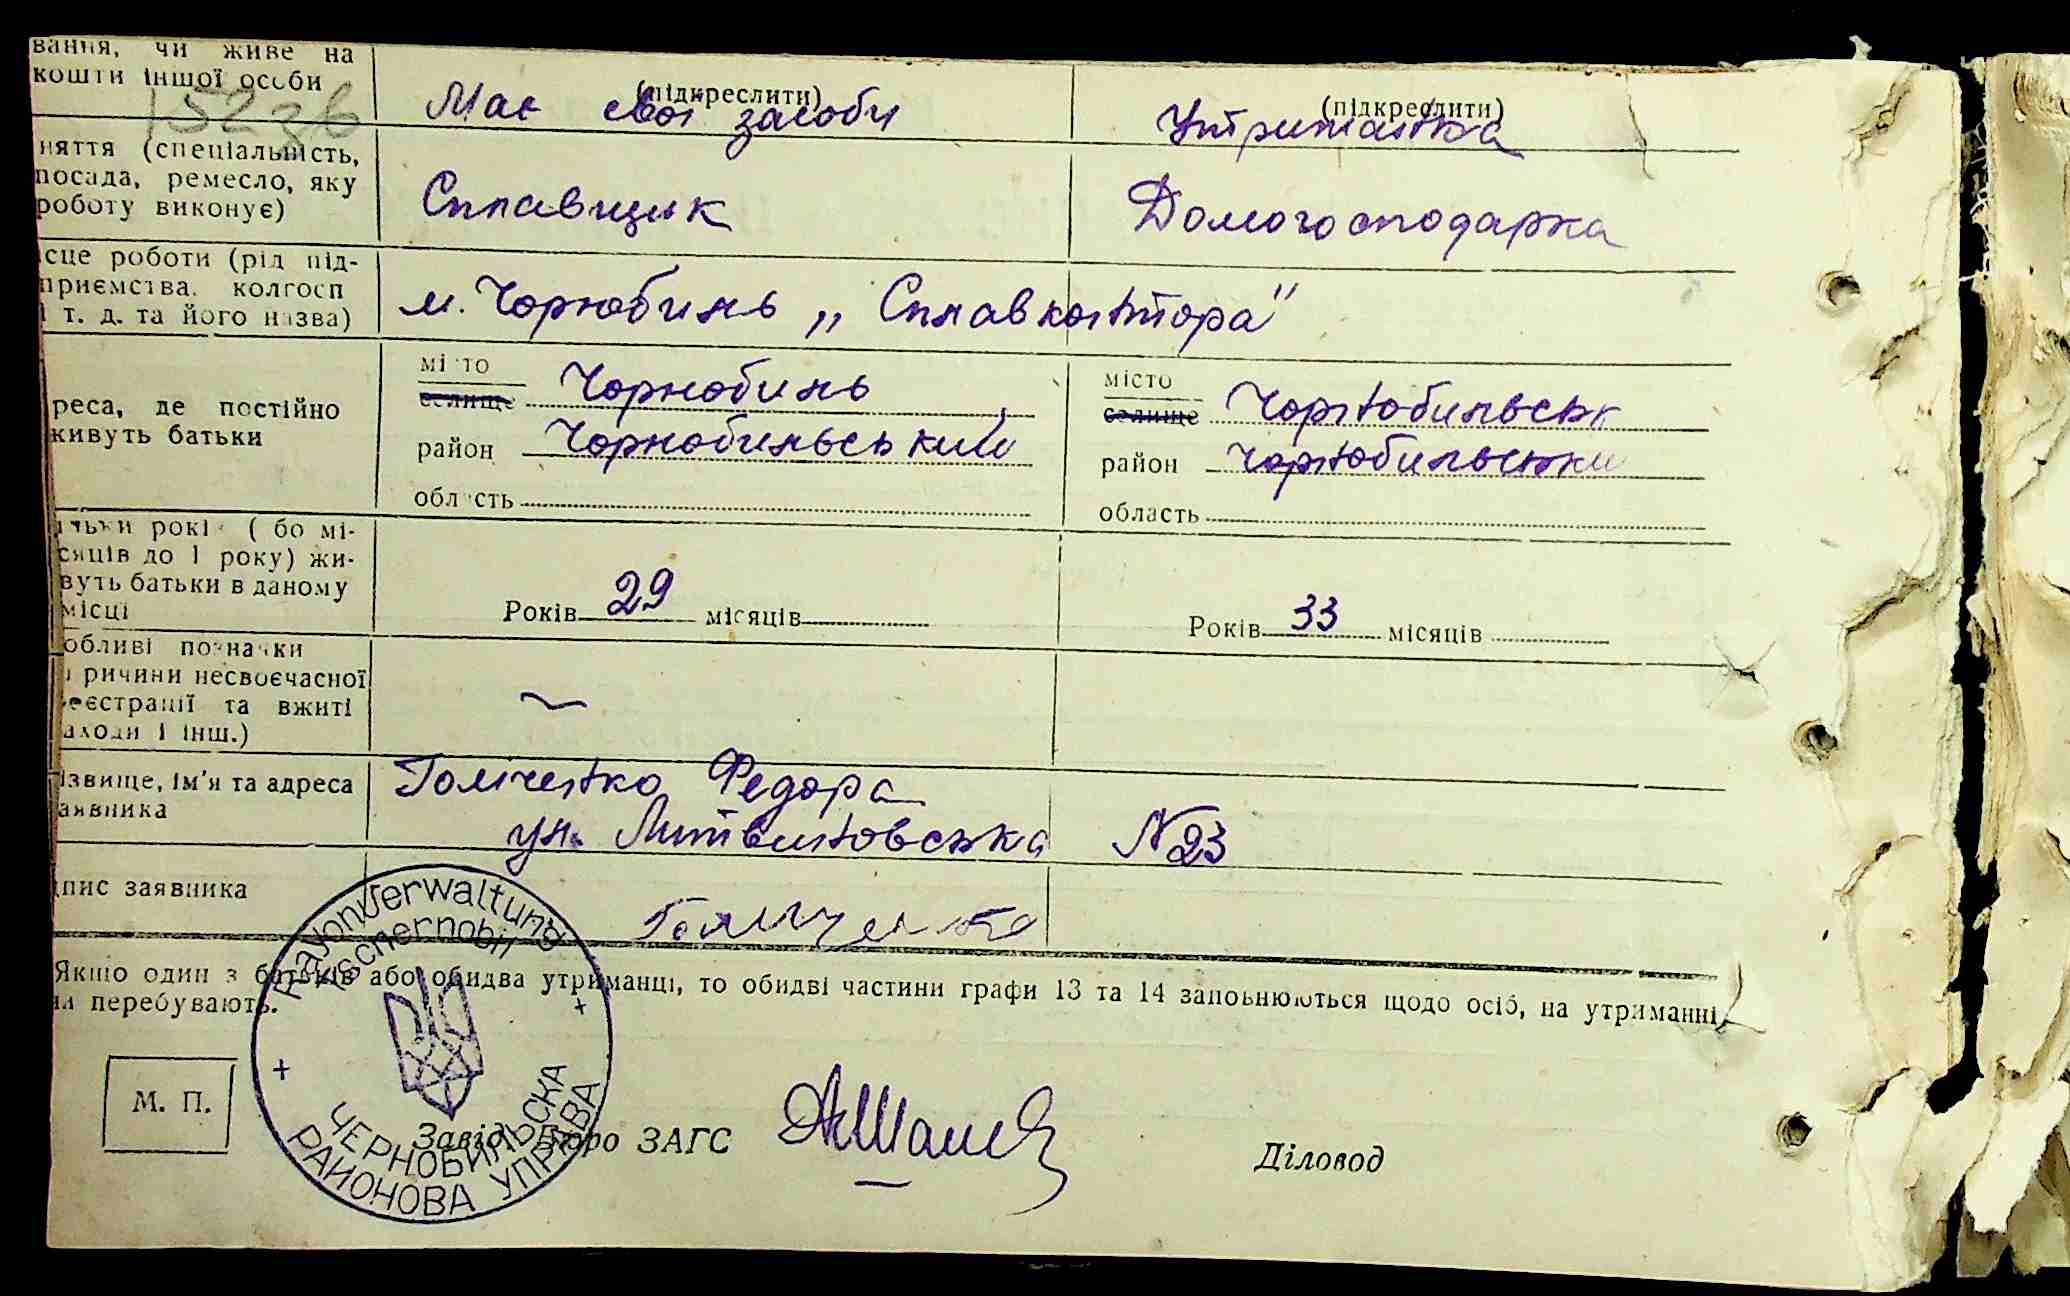 вання, чи живе на
кошти іншої особи
15236
(підкреслити) (підкреслити)
Має свої засоби Утриманка
няття (спеціальність,
посада, ремесло, яку
роботу виконує)
Сплавщик Домогосподарка
сце роботи (рід під-
приємства, колгосп
і т. д. та його назва)
м. Чорнобиль „Сплавконтора"
реса, де постійно
живуть батьки
місто
селище Чорнобиль
район Чорнобильський
область
місто
селище Чорнобильськ
район Чорнобильськи
область
льки рокі ( бо мі-
сяців до 1 року) жи-
вуть батьки в даному
місці
Років 29 місяців
Років 33 місяців
обливі позначки
ричини несвоєчасної
еєстрації та вжиті
аходи і інш.)
ізвище, ім'я та адреса
аявника
Гомченко Федора
ул. Литвиновська N 23
пис заявника
Гомченко
Якщо один з батьків або обидва утриманці, то обидві частини графи 13 та 14 заповнюються щодо осіб, на утриманні
їх перебувають.
RayonVerwaltung
Tschernobil
ЧЕРНОБИЛЬСКА
РАИОНОВА УПРАВА
М. П.
Завід. Бюро ЗАГС
Діловод